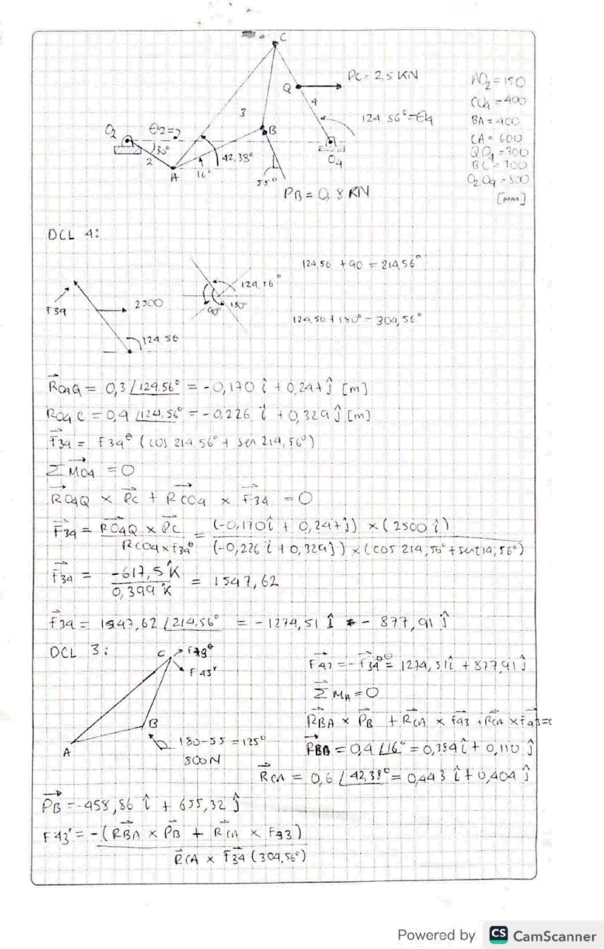 C
PC = 2,5 KN
Q
4
124.56° = θ4
3
B
O2
θ2 =
35°
2
A
16°
42,38°
55°
O4
PB = 0,8 KN
AO2 = 150
CO4 = 400
BA = 400
CA = 600
QO4 = 300
BC = 300
O2O4 = 800
[mm]
DCL 4:
F34
2500
124.56
124,56°
90°
180°
124.56 + 90 = 214,56°
124,56 + 180° = 304,56°
RO4Q = 0,3 ∠124.56° = -0,170 î + 0,247 ĵ [m]
RO4C = 0,4 ∠124,56° = -0,226 î + 0,329 ĵ [m]
F34 = F34θ (cos 214.56° + sen 214,56°)
Σ MO4 = 0
RO4Q × PC + RCO4 × F34 = 0
F34 = RO4Q × PC / RCO4 × F34θ = (-0,170î + 0,247ĵ) × (2500 î) / (-0,226 î + 0,329ĵ) × (cos 214,56° + sen214,56°)
F34 = -617,5 K̂ / 0,399 K̂ = 1547,62
F34 = 1547,62 ∠214,56° = -1274,51 î - 877,91 ĵ
DCL 3:
C
F43θ
F43r
B
A
180-55 = 125°
800N
F43 = -F34θ = 1274,51î + 877,91 ĵ
Σ MA = 0
RBA × PB + RCA × F43 + RCA × F43 = 0
RBA = 0,4 ∠16° = 0,384 î + 0,110 ĵ
RCA = 0,6 ∠42,38° = 0,443 î + 0,404 ĵ
PB = -458,86 î + 655,32 ĵ
F43r = -(RBA × PB + RCA × F43) / RCA × F34 (304,56°)
Powered by CS CamScanner